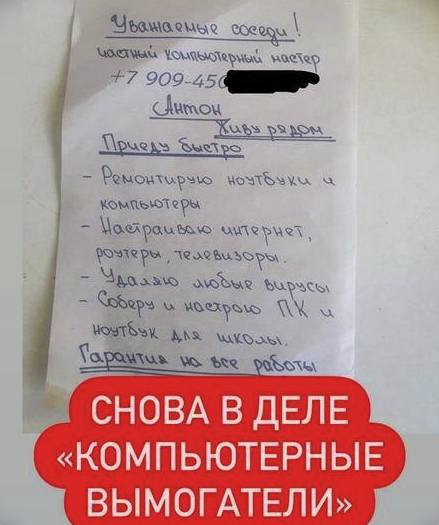 Уважаемые соседи!
частный компьютерный мастер
+7 909-450
Антон
Живу рядом
Приеду быстро
- Ремонтирую ноутбуки и
компьютеры
- Настраиваю интернет,
роутеры, телевизоры.
- Удаляю любые вирусы
- Соберу и настрою ПК и
ноутбук для школы.
Гарантия на все работы
СНОВА В ДЕЛЕ
«КОМПЬЮТЕРНЫЕ
ВЫМОГАТЕЛИ»